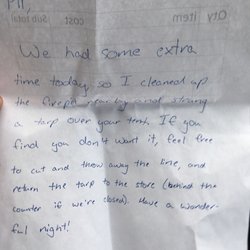 Hi,
We had some extra
time today so I cleaned up
the firepit nearby and strung
a tarp over your tent. If you
find you don't want it, feel free
to cut and throw away the line, and
return the tarp to the store (behind the
counter if we're closed). Have a wonder-
ful night!